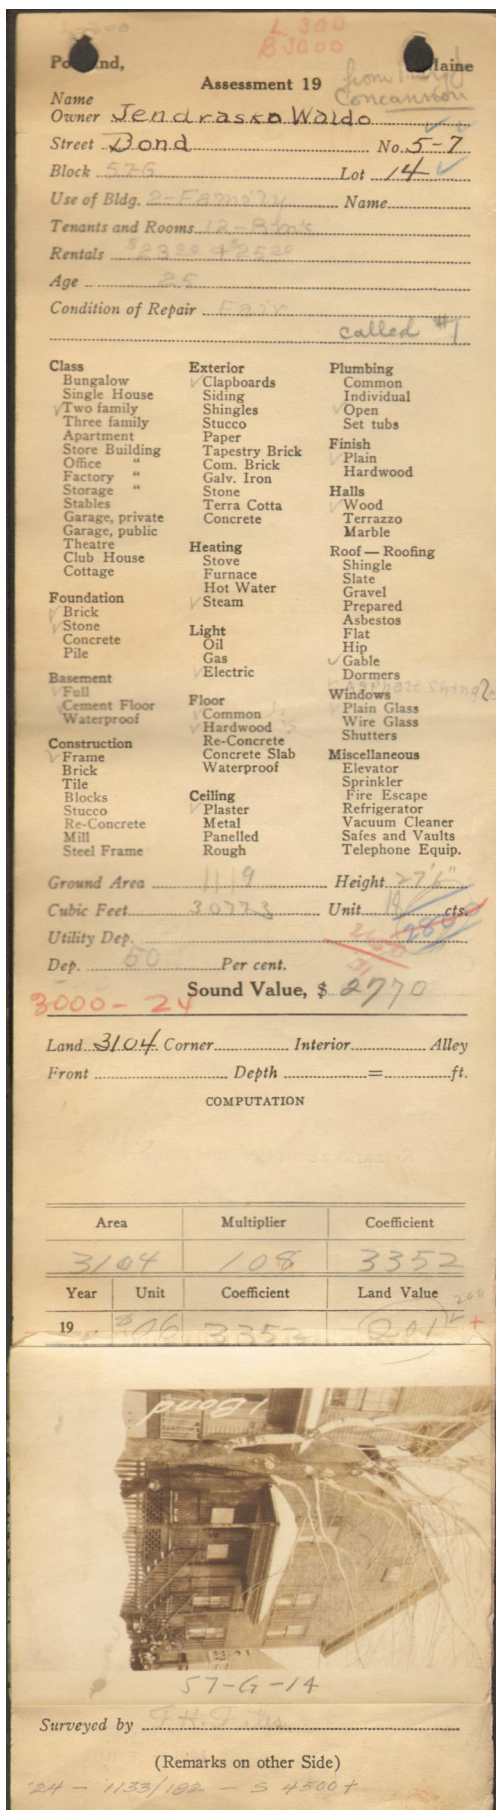 L 300
B 3000
Maine
Assessment 19
from
Concannon
Name
Owner Jendrasko Waldo
Street Bond No. 5-7
Block 57-G Lot 14
Use of Bldg. 2-Family Name
Tenants and Rooms 12-Rm's
Rentals $23.00 & $25.00
Age 25
Condition of Repair Fair
called #1
Class
Bungalow
Single House
✓Two family
Three family
Apartment
Store Building
Office "
Factory "
Storage "
Stables
Garage, private
Garage, public
Theatre
Club House
Cottage
Foundation
✓Brick
✓Stone
Concrete
Pile
Basement
✓Full
✓Cement Floor
Waterproof
Construction
✓Frame
Brick
Tile
Blocks
Stucco
Re-Concrete
Mill
Steel Frame
Exterior
✓Clapboards
Siding
Shingles
Stucco
Paper
Tapestry Brick
Com. Brick
Galv. Iron
Stone
Terra Cotta
Concrete
Heating
Stove
Furnace
Hot Water
✓Steam
Light
Oil
Gas
✓Electric
Floor
✓Common
✓Hardwood
Re-Concrete
Concrete Slab
Waterproof
Ceiling
✓Plaster
Metal
Panelled
Rough
Plumbing
Common
Individual
✓Open
Set tubs
Finish
✓Plain
Hardwood
Halls
✓Wood
Terrazzo
Marble
Roof — Roofing
Shingle
Slate
Gravel
Prepared
Asbestos
Flat
Hip
✓Gable
Dormers
Asphalt Shingle
Windows
✓Plain Glass
Wire Glass
Shutters
Miscellaneous
Elevator
Sprinkler
Fire Escape
Refrigerator
Vacuum Cleaner
Safes and Vaults
Telephone Equip.
Ground Area 1119 Height 27'6"
Cubic Feet 30773 Unit 18 cts.
Utility Dep. 2800
Dep. 50 Per cent.
Sound Value, $ 2770
3000 - 24
Land 3104 Corner Interior Alley
Front Depth = ft.
COMPUTATION
Area Multiplier Coefficient
3104 108 3352
Year Unit Coefficient Land Value
19 $06 3352 201 200
+
1 Bond
57-G-14
Surveyed by F.H. Files
(Remarks on other Side)
'24 - 1133/182 - S 4500+